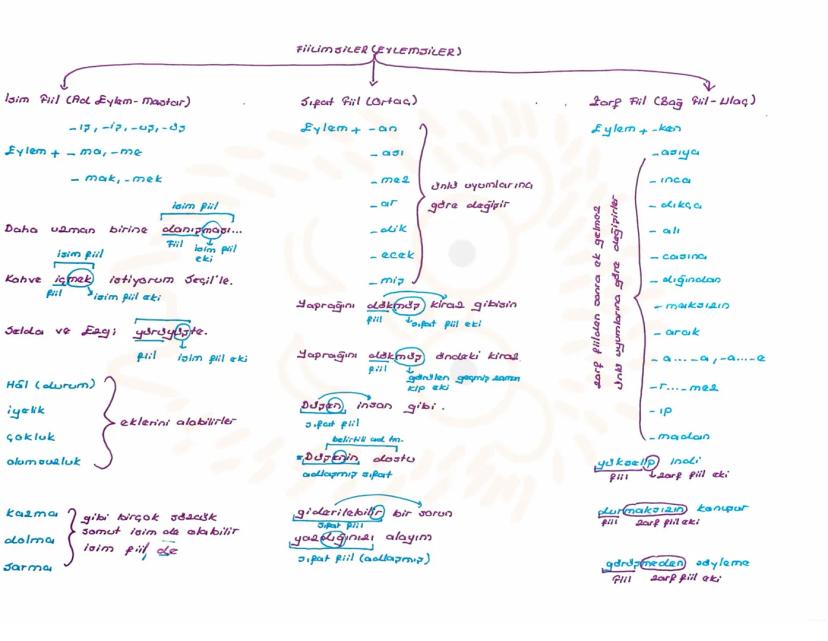 FİİLİMSİLER (EYLEMSİLER)
İsim fiil (Ad Eylem-Mastar)
-ış, -iş, -uş, -üş
Eylem + -ma, -me
-mak, -mek
isim fiil
Daha uzman birine danışması...
fiil isim fiil eki
isim fiil
Kahve içmek istiyorum Seçil'le.
fiil isim fiil eki
Selda ve Ezgi yürüyüşte.
fiil isim fiil eki
Hâl (durum)
iyelik
çokluk
olumsuzluk
eklerini alabilirler
kazma
dolma
sarma
gibi birçok sözcük
somut isim de olabilir
isim fiil de
Sıfat fiil (Ortaç)
Eylem + -an
-ası
-mez
-ar
-dik
-ecek
-miş
ünlü uyumlarına
göre değişir
Yaprağını dökmüş kiraz gibisin
fiil sıfat fiil eki
Yaprağını dökmüş öndeki kiraz.
fiil görülen geçmiş zaman
kip eki
Düşen insan gibi.
sıfat fiil
belirtili ad tm.
Düşenin dostu
adlaşmış sıfat
giderilebilir bir sorun
sıfat fiil
yazdığınızı alayım
sıfat fiil (adlaşmış)
Zarf Fiil (Bağ fiil-Ulaç)
Eylem + -ken
-asıya
-ınca
-dıkça
-alı
-casına
-dığından
-maksızın
-arak
-a....-a, -a....-e
-r....-mez
-ıp
-madan
zarf fiilden sonra ek gelmez
ünlü uyumlarına göre değişirler
yükselip indi
fiil zarf fiil eki
durmaksızın konuşur
fiil zarf fiil eki
görüşmeden söyleme
fiil zarf fiil eki